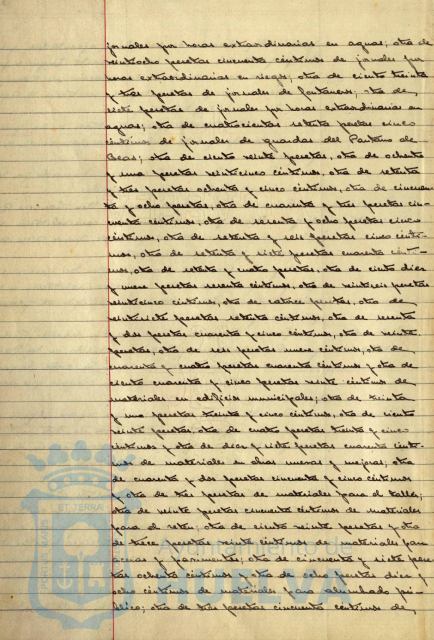 jornales por horas extraordinarias en aguas; otra de
veintiocho pesetas cincuenta céntimos de jornales por
horas extraordinarias en riegos; otra de ciento treinta
y tres pesetas de jornales de fontaneros; otra de
siete pesetas de jornales por horas extraordinarias en
aguas; otra de cuatrocientas setenta pesetas cinco
céntimos de jornales de guardas del Pantano de
Beas; otra de ciento veinte pesetas, otra de ochenta
y una pesetas veinticinco céntimos, otra de setenta
y tres pesetas ochenta y cinco céntimos, otra de cincuen-
ta y ocho pesetas, otra de cuarenta y tres pesetas cin-
cuenta céntimos, otra de sesenta y ocho pesetas cinco
céntimos, otra de setenta y seis pesetas cinco cénti-
mos, otra de setenta y siete pesetas cuarenta cénti-
mos, otra de setenta y cuatro pesetas, otra de ciento diez
y nueve pesetas sesenta céntimos, otra de veintiseis pesetas
veinticinco céntimos, otra de catorce pesetas, otra de
veintisiete pesetas setenta céntimos, otra de sesenta
y dos pesetas cuarenta y cinco céntimos, otra de veinte
pesetas, otra de seis pesetas nueve céntimos, otra de
cuarenta y cuatro pesetas cuarenta céntimos y otra de
ciento cuarenta y cinco pesetas veinte céntimos de
materiales en edificios municipales; otra de treinta
y una pesetas treinta y cinco céntimos, otra de ciento
veinte pesetas, otra de cuatro pesetas treinta y cinco
céntimos y otra de diez y siete pesetas cuarenta cénti-
mos de materiales en obras nuevas y mejoras; otra
de cuarenta y dos pesetas cincuenta y cinco céntimos
y otra de tres pesetas de materiales para el taller;
otra de veinte pesetas cincuenta céntimos de materiales
para el reten; otra de ciento veinte pesetas y otra
de trece pesetas veinte céntimos de materiales para
aceras y pavimentos; otra de cincuenta y siete pese-
tas ochenta céntimos y otra de ocho pesetas diez y
ocho céntimos de materiales para alumbrado pú-
blico; otra de tres pesetas cincuenta céntimos de